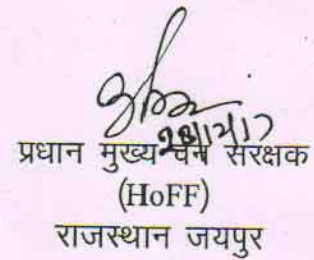 28/12/17
प्रधान मुख्य वन संरक्षक
(HoFF)
राजस्थान जयपुर